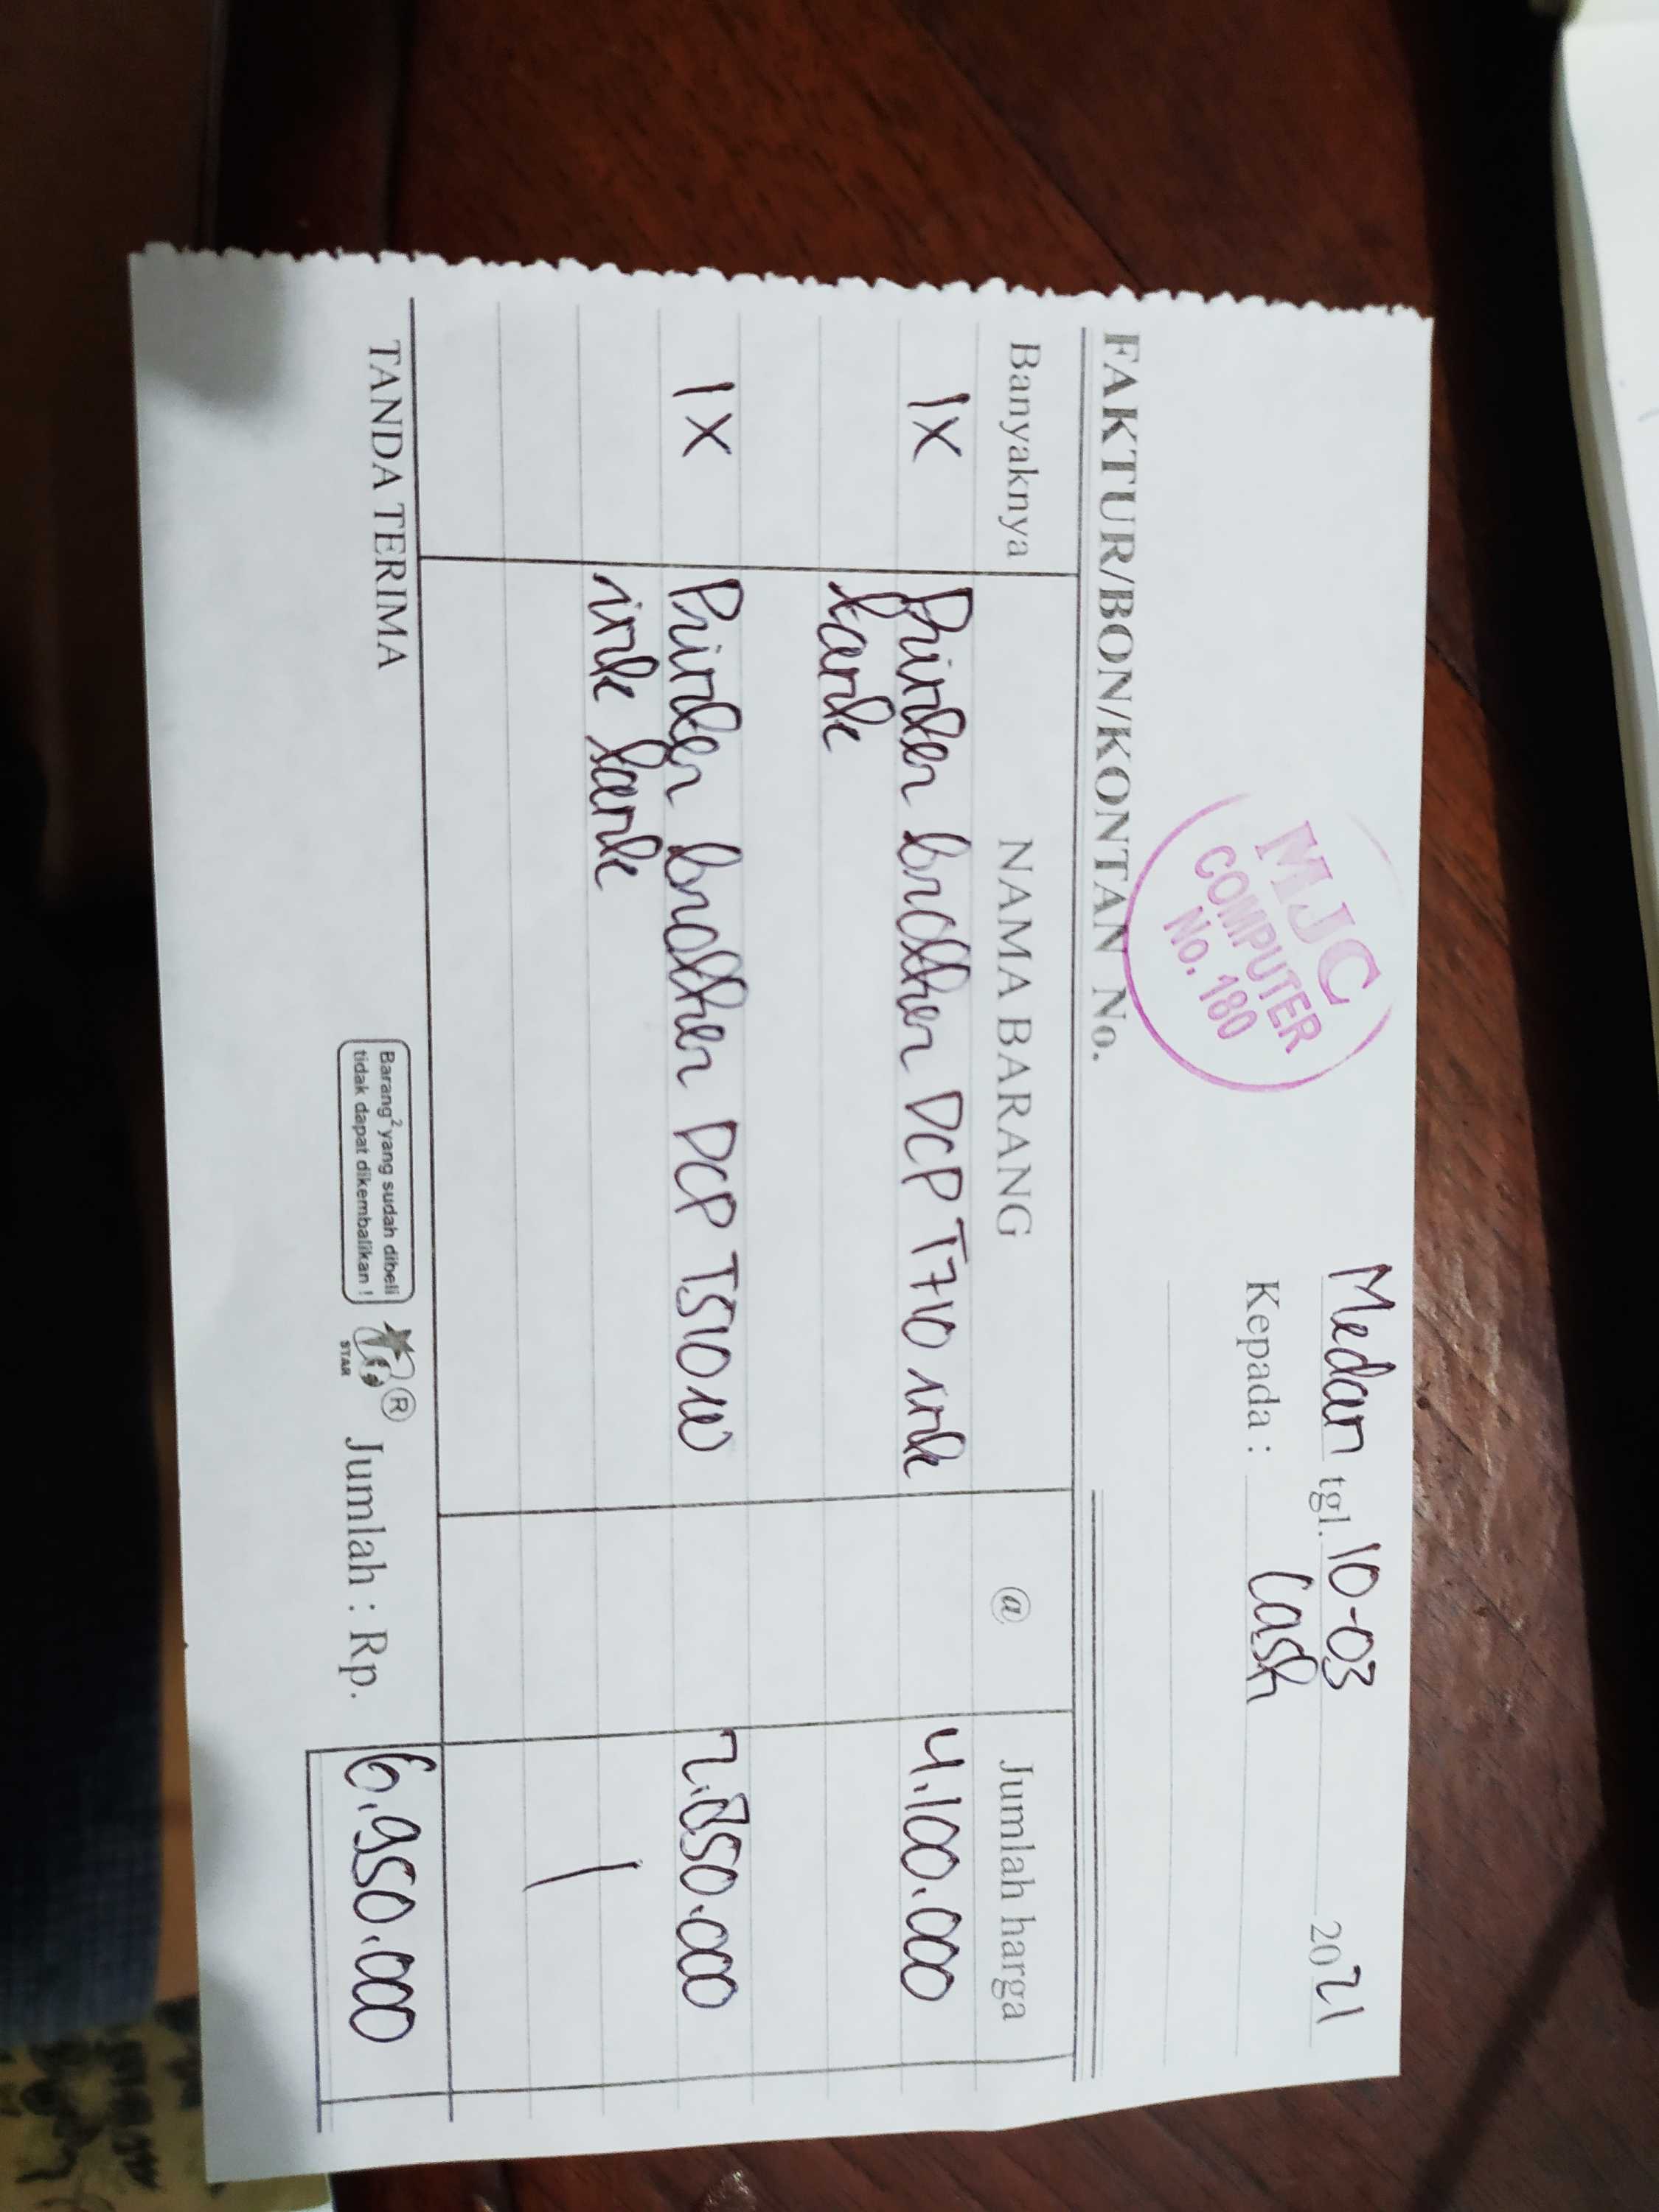 MJC
COMPUTER
No. 180
Medan tgl. 10-03 2021
Kepada : Cash
FAKTUR/BON/KONTAN No.
Banyaknya NAMA BARANG @ Jumlah harga
1X Printer brother DCP T710 ink 4.100.000
tank
1X Printer brother DCP T510W 2.850.000
ink tank
TANDA TERIMA
Barang² yang sudah dibeli
tidak dapat dikembalikan !
STAR
®
Jumlah : Rp. 6.950.000